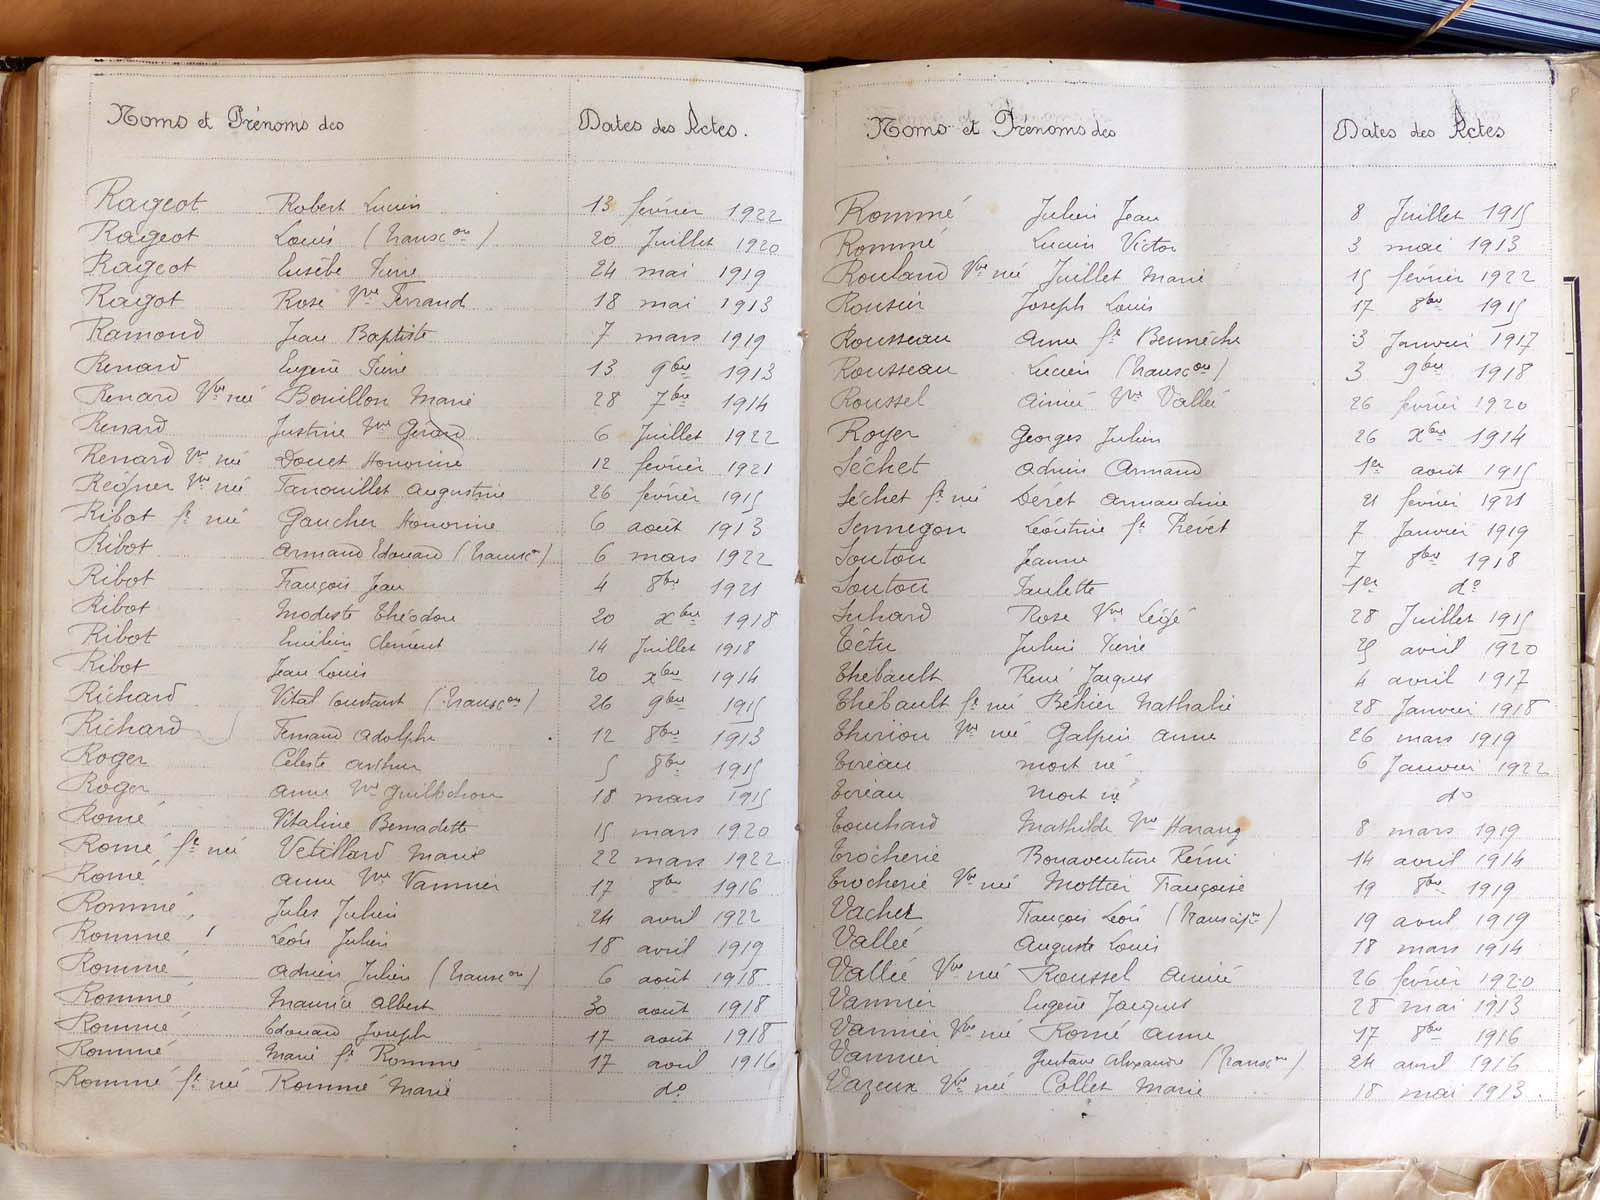 Noms et Prénoms des Dates des Actes.
Rageot Robert Lucien 13 février 1922
Rageot Louis (Transc on) 20 Juillet 1920
Rageot Eusèbe Pierre 24 mai 1919
Ragot Rose Vve Ferrand 18 mai 1913
Ramond Jean Baptiste 7 mars 1919
Renard Eugène Pierre 13 9bre 1913
Renard Vve née Bouillon Marie 28 7bre 1914
Renard Justine Vve Gérard 6 Juillet 1922
Renard Vve née Douet Honorine 12 février 1921
Régner Vve née Tanouillet Augustine 26 février 1915
Ribot fe née Gaucher Honorine 6 août 1913
Ribot Armand Edouard (Transcon) 6 mars 1922
Ribot François Jean 4 8bre 1921
Ribot Modeste Théodore 20 xbre 1918
Ribot Emilien Clément 14 Juillet 1918
Ribot Jean Louis 20 xbre 1914
Richard Vital Constant (Transcon) 26 9bre 1915
Richard Fernand Adolphe 12 8bre 1913
Roger Céleste Arthur 5 8bre 1915
Roger Anne Vve 18 mars 1915
Romé Vitaline Bernadette 15 mars 1920
Romé fe née Vétillard Marie 22 mars 1922
Romé Anne Vve Vannier 17 8bre 1916
Rommé Jules Julien 24 avril 1922
Rommé Léon Julien 18 avril 1919
Rommé Adrien Julien (Transcon) 6 août 1918
Rommé Maurice Albert 30 août 1918
Rommé Edouard Joseph 17 août 1918
Rommé Marie fe Rommé 17 avril 1916
Rommé fe née Rommé Marie do
Noms et Prénoms des Dates des Actes
Rommé Julien Jean 8 Juillet 1915
Rommé Lucien Victor 3 mai 1913
Rouland Vve née Juillet Marie 15 février 1922
Rousier Joseph Louis 17 8bre 1915
Rousseau Anne fe Bennèche 3 Janvier 1917
Rousseau Lucien (Transcon) 3 9bre 1918
Roussel Aimée Vve Vallée 26 février 1920
Royer Georges Julien 26 xbre 1914
Séchet Adrien Armand 1er août 1915
Séchet fe née Déret Armandine 21 février 1921
Sennegon Léontine fe Prévet 7 Janvier 1919
Souton Jeanne 7 8bre 1918
Souton Paulette 1er do
Suhard Rose Vve Légé 28 Juillet 1915
Têtu Julien Pierre 25 avril 1920
Thébault René Jacques 4 avril 1917
Thébault fe née Béhier Nathalie 28 Janvier 1918
Thirion Vve née Galpin Anne 26 mars 1919
Tireau mort né 6 Janvier 1922
Tireau mort né do
Touchard Mathilde Vve Harang 8 mars 1919
Trocherie Bonaventure Rémi 14 avril 1914
Trocherie Vve née Mottier Françoise 19 8bre 1919
Vacher François Léon (Transcipn) 19 avril 1919
Vallée Auguste Louis 18 mars 1914
Vallée Vve née Roussel Aimée 26 février 1920
Vannier Eugène Jacques 28 mai 1913
Vannier Vve née Romé Anne 17 8bre 1916
Vannier Gustave Alexandre (Transcon) 24 avril 1916
Vazeux Vve née Collet Marie 18 mai 1913.